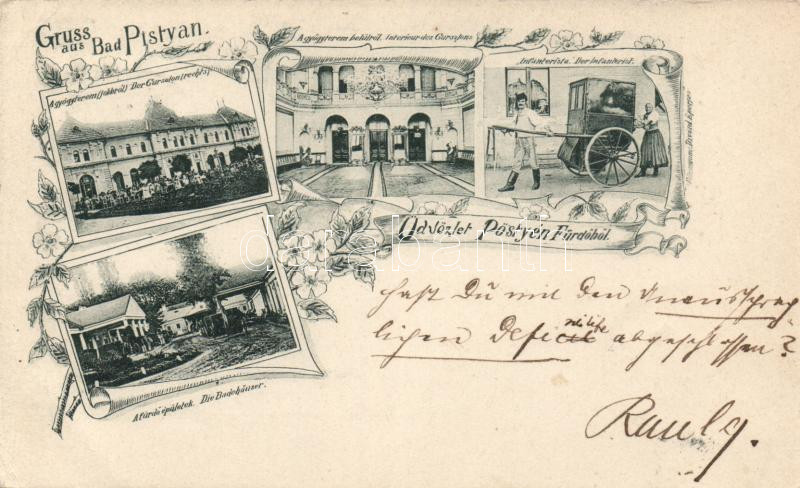 Gruss
aus Bad Pistyan.
A gyógyterem (jobbról) Der Cursalon (rechts)
A gyógyterem belülről. Interieur des Cursalons
Infanterista. Der Infanterist.
Üdvözlet Pöstyén Fürdőből.
A fürdő épületek. Die Badehäuser.
hast Du mit den Unaussprech
lichen Defi abgeschlossen?